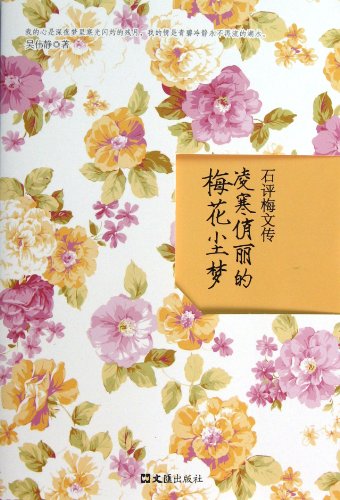 我的心是深夜梦里寒光闪灼的残月，我的情是青碧冷静永不再流的湖水。
吴伟静◎著
石评梅文传
凌寒俏丽的
梅花尘梦
文汇出版社